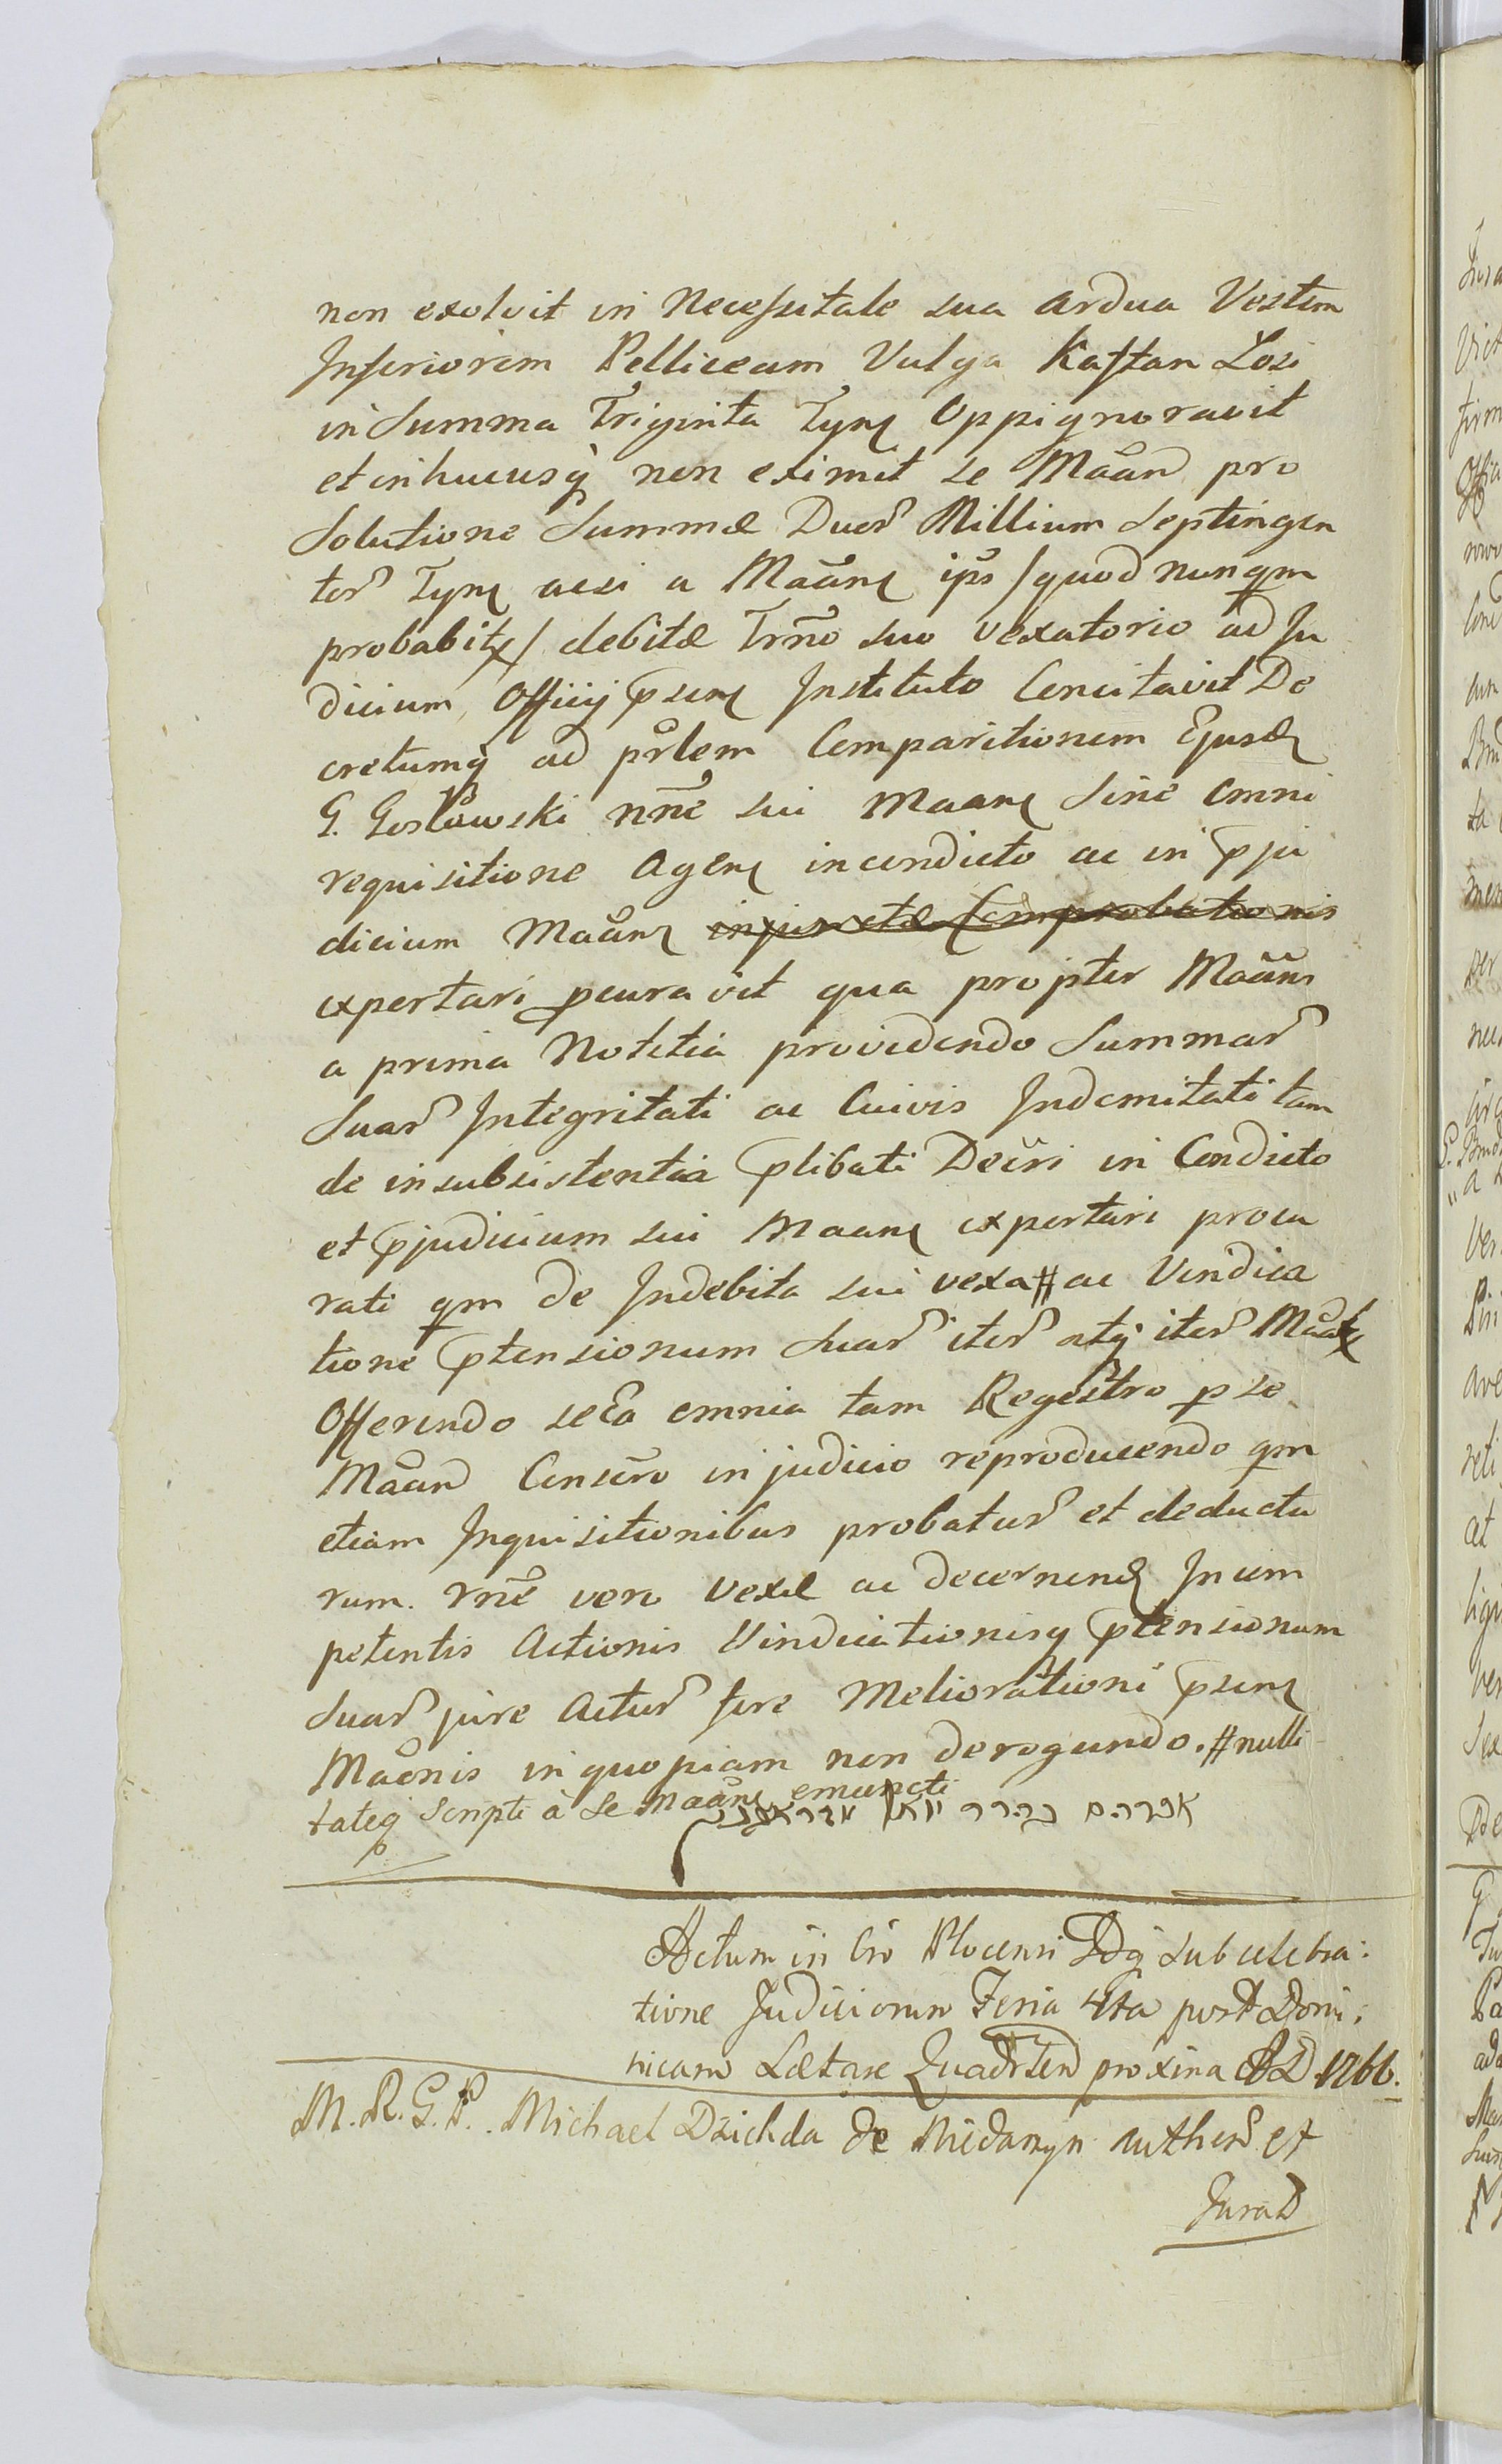 non exolvit in Necessitate sua ardua Vestem
Inferiorem Pelliceam Vulgo Kaftan Losi
in Summa Triginta Tyn Oppignoravit
et in hucusq non eximit se Maand pro
Solutione Summæ Duor Millium Septingen
tor Tyn acsi a Maane ips /quod nunqm
probabitx/ debitæ Trno suo vexatorio ad Ju
dicium Officij psens Instituto Concitavit De
cretumq ad prlem Comparitionem Ejusd
G. Gostowski nne sui Maane Sine omni
requisitione Agen incondicto ac in pju
dicium Maane injunctæ Comprobationis
expertari pcuravit qua propter Maans
a prima Notitia providendo Summar
Suar Integritati ac Cuivis Indemitati tam
de insubsistentia plibati Decri in Condicto
et pjudicium sui Maane expertari procu
rati qm de Indebita sui vexa # ac Vindica
tione ptensionum Suar iter atq iter Maatx
Offerendo se Ea omnia tam Regestro p se
Maand Conscro in judicio reproducendo qm
etiam Inquisitionibus probatur et deductu
rum. Rne vero Vexæ ac decernend Incom
petentis Actionis Vindicationisq ptensionum
Suar jure Actur fore Meliorationi psens
Maonis in quopiam non derogando. # nulli
tateq Scripti à se Maane emuncti
אברהם
Actum in Cro Plocensi Ddq sub celebra:
tione Judiciorum Feria 4ta post Domi:
nicam Lætare Quadrlem proxima AD 1766.
M. R. G. P. Michael Dzichda de Miedanyn Author et
Jurad